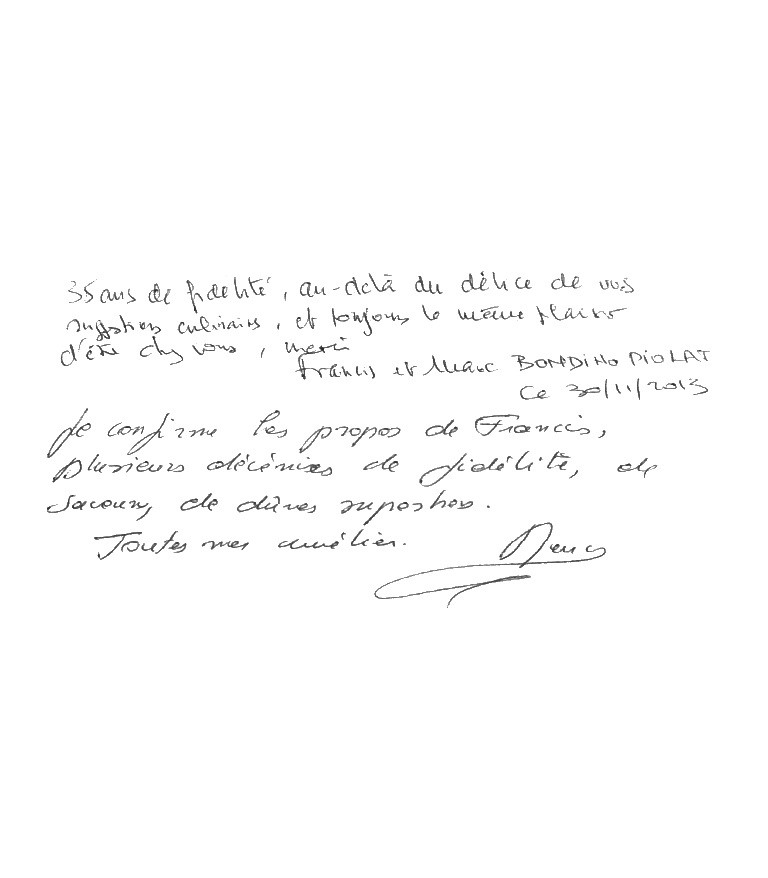 35 ans de fidélité, au-delà du délice de vos
suggestions culinaires, et toujours le même plaisir
d'être chez vous, merci
Francis et Marc BONDINO PIOLAT
Ce 30/11/2013
Je confirme les propos de Francis,
plusieurs décénies de fidélité, de
saveurs, de
Toutes mes